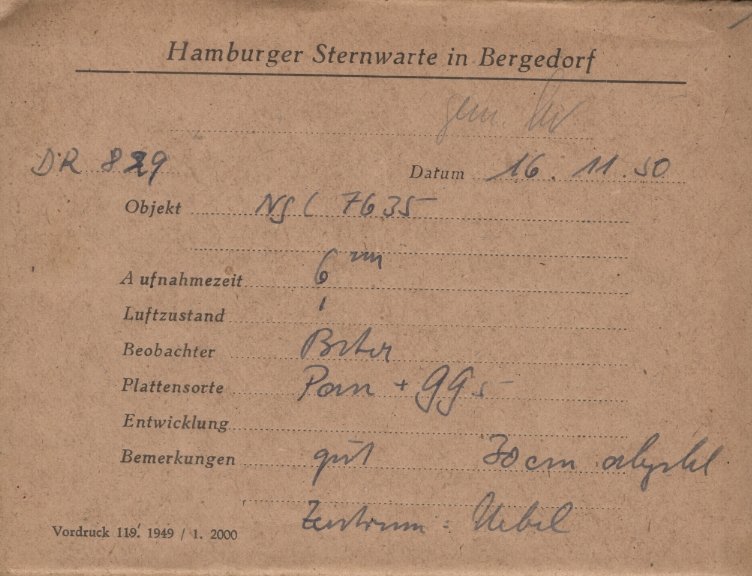 Hamburger Sternwarte in Bergedorf
DR 829 Datum 16. 11. 50
Objekt NGC 7635
Aufnahmezeit 6 m
Luftzustand 1
Beobachter
Plattensorte Pan + GG5
Entwicklung
Bemerkungen gut 30 cm
Zentrum: Nebel
Vordruck 119. 1949 / 1. 2000